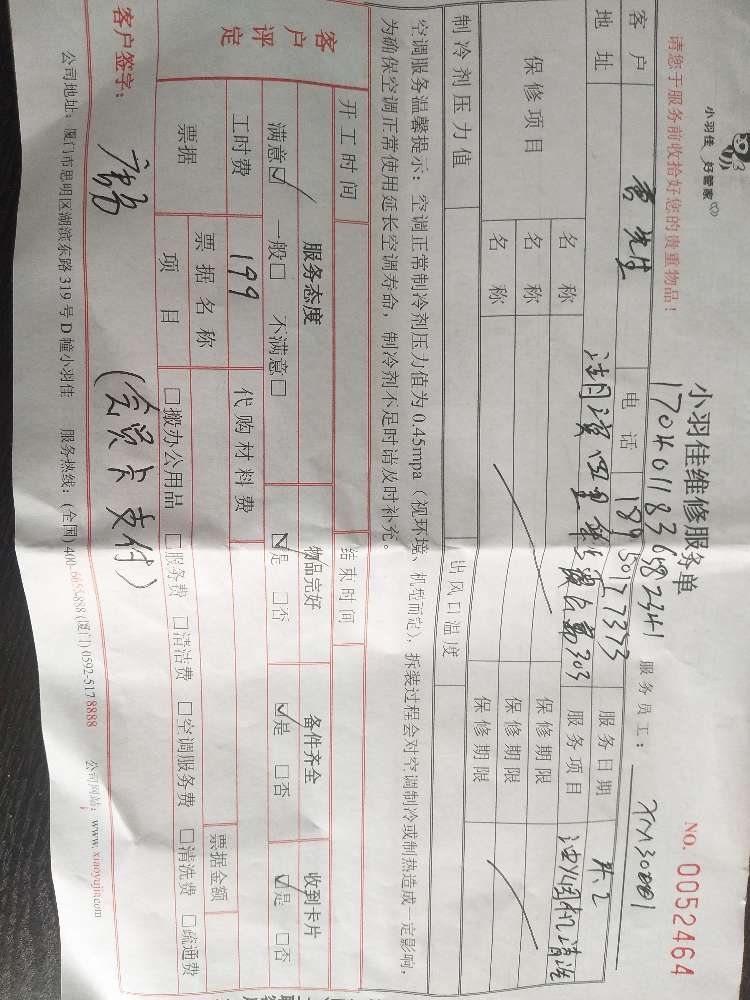 小羽佳 好管家
小羽佳维修服务单
NO. 0052464
170401183682341
请您于服务前收拾好您的贵重物品！
服务员工： XM30001
客户 曹先生 电话 18950127353 服务日期
地址 服务项目 油烟机清洗
保修项目 名称 保修期限
名称 保修期限
名称 保修期限
制冷剂压力值 出风口温度
空调服务温馨提示：空调正常制冷剂压力值为0.45mpa（视环境、机型而定），拆装过程会对空调制冷或制热造成一定影响，
为确保空调正常使用延长空调寿命，制冷剂不足时请及时补充。
开工时间 结束时间
客户评定 服务态度 物品完好 备件齐全 收到卡片
满意☑ 一般□ 不满意□ ☑是 □否 ☑是 □否 ☑是 □否
工时费 199 代购材料费
票据 票据名称 票据金额
项目 □搬办公用品 □服务费 □清洁费 □空调服务费 □清洗费 □疏通费
客户签字： （会员卡支付）
公司地址：厦门市思明区湖滨东路319号D幢小羽佳 服务热线：(全国)400-6655-888 (厦门)0592-5178888 公司网站：www.xiaoyujia.com